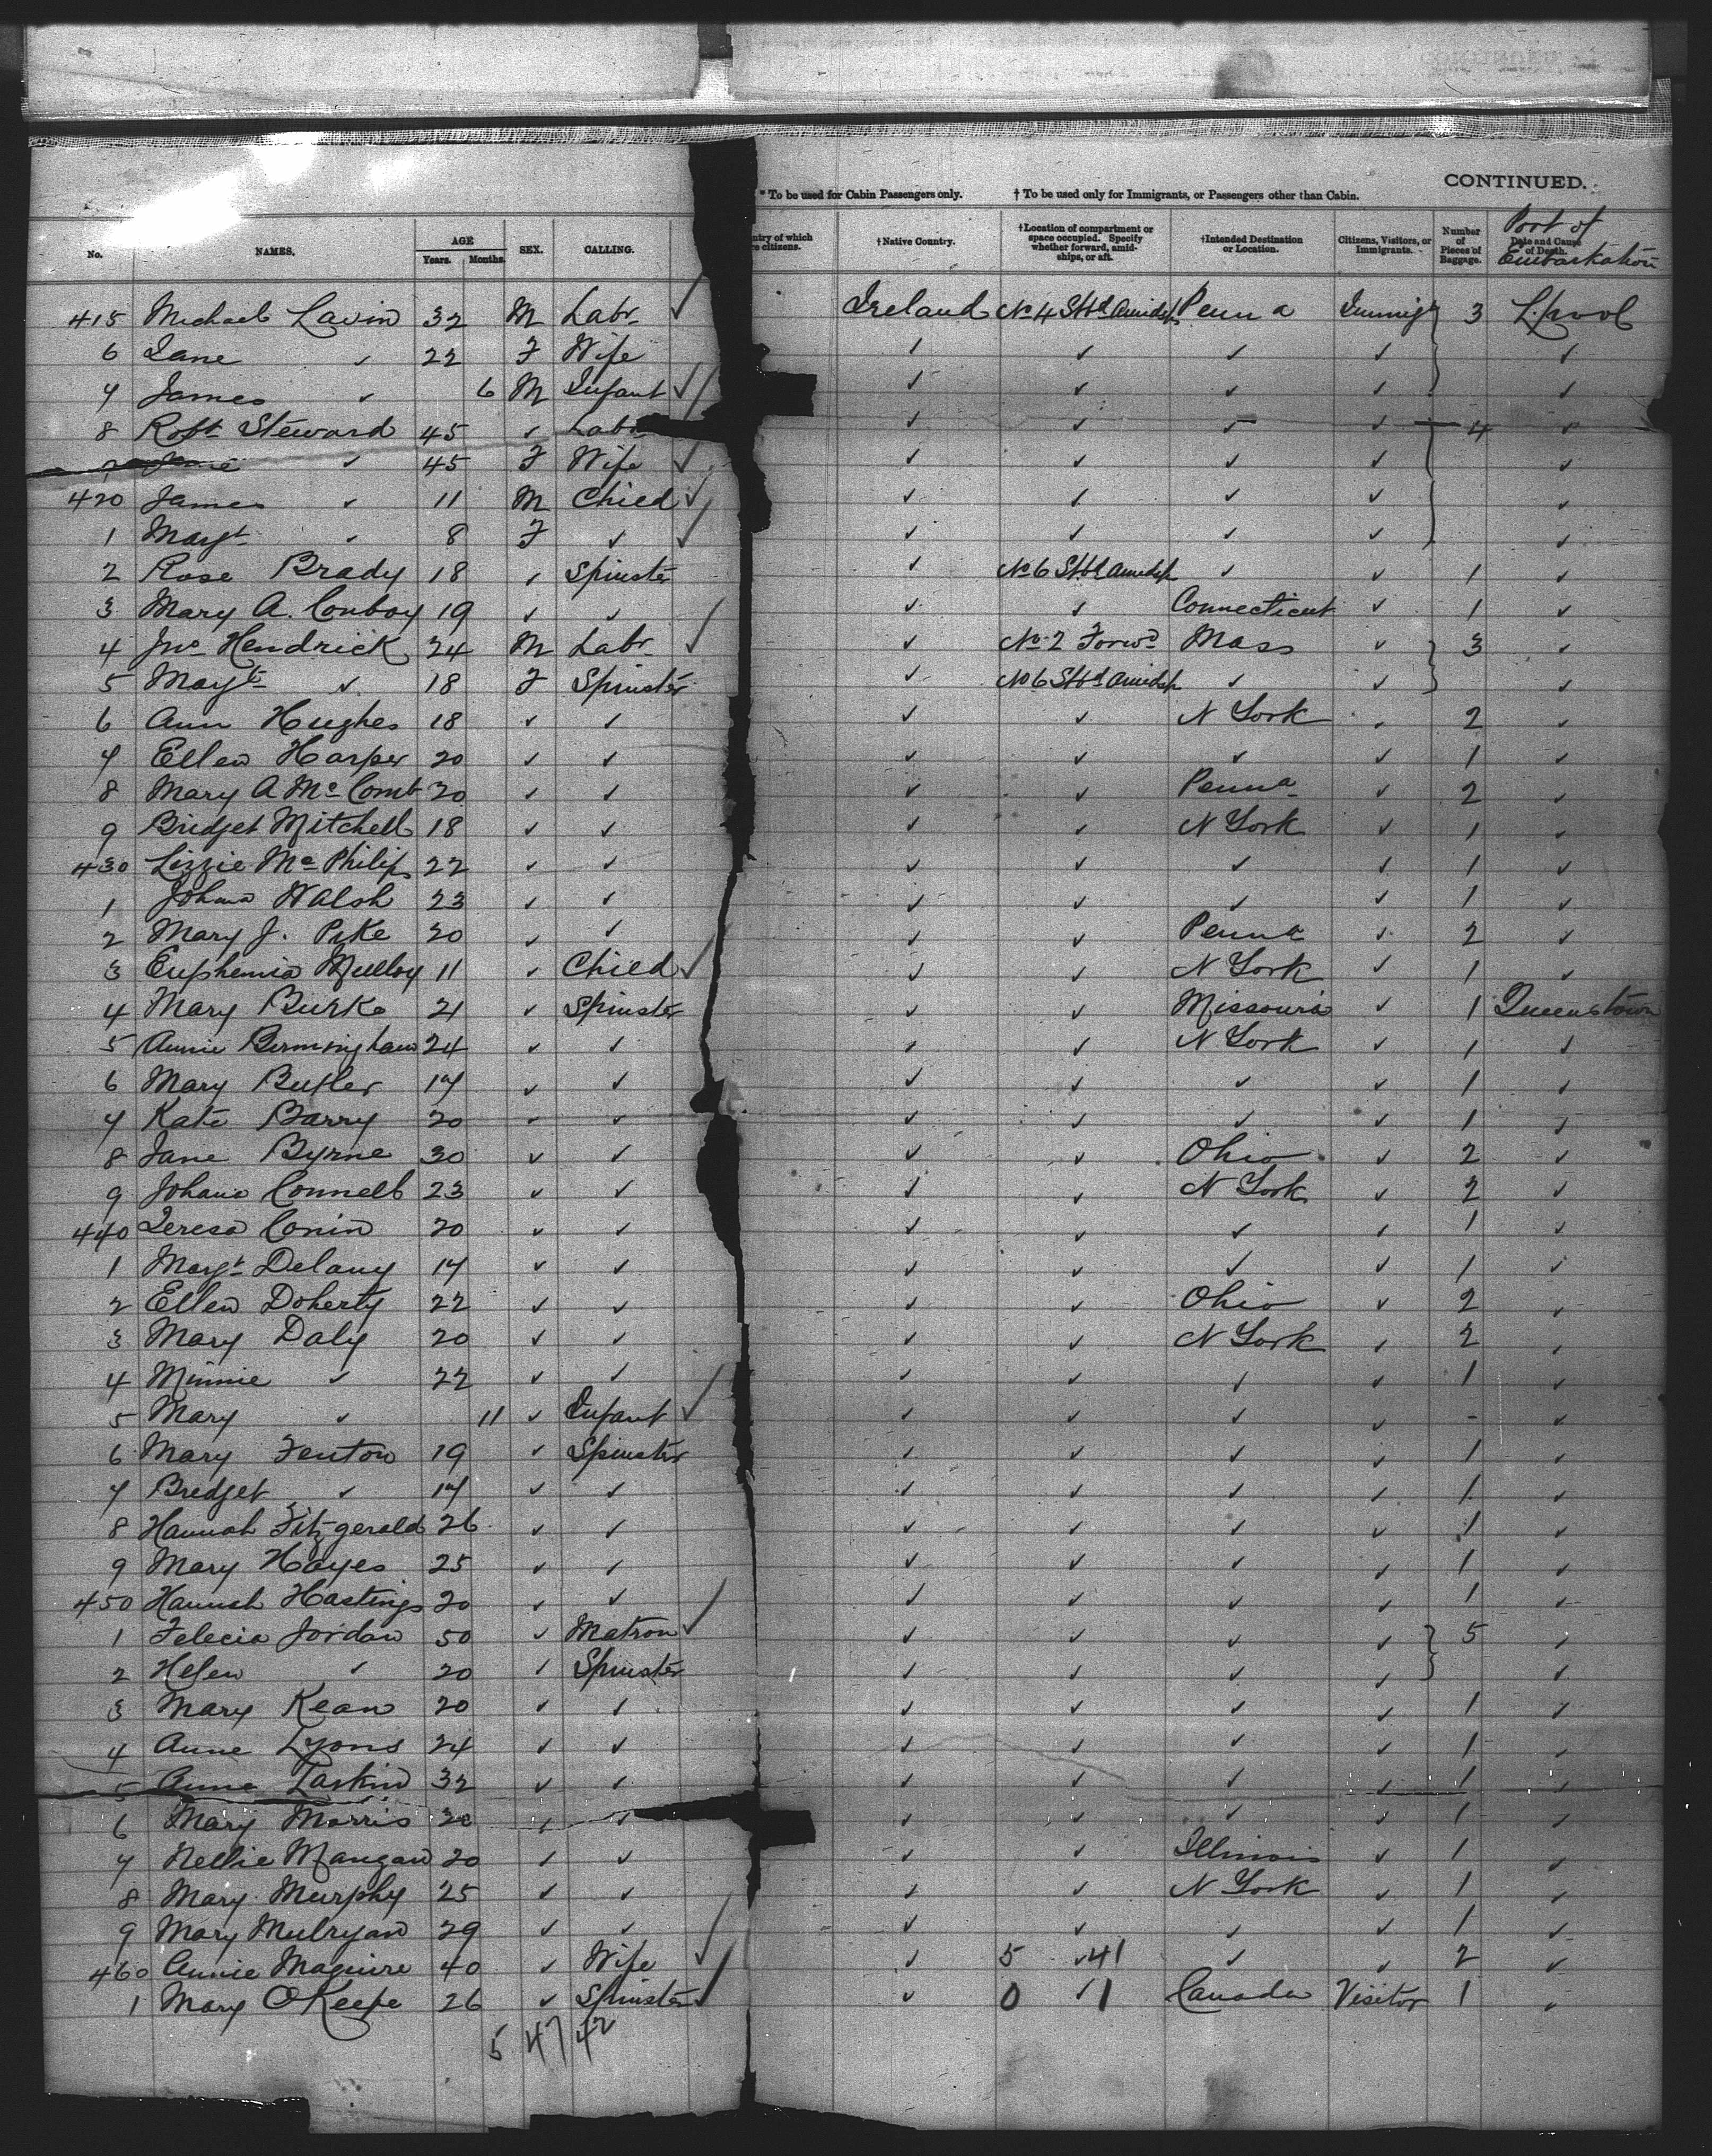 CONTINUED.
* To be used for Cabin Passengers only. † To be used only for Immigrants, or Passengers other than Cabin.
No. NAMES. AGE Years. Months. SEX. CALLING. †Native Country. †Location of compartment or space occupied. Specify whether forward, amidships, or aft. †Intended Destination or Location. Citizens, Visitors, or Immigrants. Number of Pieces of Baggage. Date and Cause of Death. Port of Embarkation
415 Michael Lavin 32 M Labr ✓ Ireland No 4 Stbd Amidsh Penna Immigt 3 L.pool
6 Jane ✓ 22 F Wife ✓ ✓ ✓ ✓ ✓
7 James ✓ 6 M Infant ✓ ✓ ✓ ✓ ✓ ✓
8 Robt Steward 45 ✓ Labr ✓ ✓ ✓ ✓ 4 ✓
9 ✓ 45 F Wife ✓ ✓ ✓ ✓ ✓ ✓
420 James ✓ 11 M Child ✓ ✓ ✓ ✓ ✓ ✓
1 Margt ✓ 8 F ✓ ✓ ✓ ✓ ✓ ✓ ✓
2 Rose Brady 18 ✓ Spinster ✓ No 6 Stbd Amidsh ✓ ✓ 1 ✓
3 Mary A. Conboy 19 ✓ ✓ ✓ ✓ Connecticut ✓ 1 ✓
4 Jno Hendrick 24 M Labr ✓ ✓ No 2 Forwd Mass ✓ 3 ✓
5 Magt ✓ 18 F Spinster ✓ No 6 Stbd Amidsh ✓ ✓ ✓
6 Ann Hughes 18 ✓ ✓ ✓ ✓ N York ✓ 2 ✓
7 Ellen Harper 20 ✓ ✓ ✓ ✓ ✓ ✓ 1 ✓
8 Mary A McComb 20 ✓ ✓ ✓ ✓ Penna ✓ 2 ✓
9 Bridget Mitchell 18 ✓ ✓ ✓ ✓ N York ✓ 1 ✓
430 Lizzie McPhilip 22 ✓ ✓ ✓ ✓ ✓ ✓ 1 ✓
1 Johna Walsh 23 ✓ ✓ ✓ ✓ ✓ ✓ 1 ✓
2 Mary J. Pike 20 ✓ ✓ ✓ ✓ Penna ✓ 2 ✓
3 Euphemia Mulloy 11 ✓ Child ✓ ✓ ✓ N York ✓ 1 ✓
4 Mary Burke 21 ✓ Spinster ✓ ✓ Missouri ✓ 1 Queenstown
5 Annie Bermingham 24 ✓ ✓ ✓ ✓ N York ✓ 1 ✓
6 Mary Butler 17 ✓ ✓ ✓ ✓ ✓ ✓ 1 ✓
7 Kate Barry 20 ✓ ✓ ✓ ✓ ✓ ✓ 1 ✓
8 Jane Byrne 30 ✓ ✓ ✓ ✓ Ohio ✓ 2 ✓
9 Johana Connell 23 ✓ ✓ ✓ ✓ N York ✓ 2 ✓
440 Teresa Conin 20 ✓ ✓ ✓ ✓ ✓ ✓ 1 ✓
1 Margt Delany 17 ✓ ✓ ✓ ✓ ✓ ✓ 1 ✓
2 Ellen Doherty 22 ✓ ✓ ✓ ✓ Ohio ✓ 2 ✓
3 Mary Daly 20 ✓ ✓ ✓ ✓ N York ✓ 2 ✓
4 Minnie ✓ 22 ✓ ✓ ✓ ✓ ✓ ✓ 1 ✓
5 Mary ✓ 11 ✓ Infant ✓ ✓ ✓ ✓ ✓ - ✓
6 Mary Fenton 19 ✓ Spinster ✓ ✓ ✓ ✓ 1 ✓
7 Bredget ✓ 17 ✓ ✓ ✓ ✓ ✓ ✓ 1 ✓
8 Hannah Fitzgerald 26 ✓ ✓ ✓ ✓ ✓ ✓ 1 ✓
9 Mary Hayes 25 ✓ ✓ ✓ ✓ ✓ ✓ 1 ✓
450 Hannah Hastings 20 ✓ ✓ ✓ ✓ ✓ ✓ 1 ✓
1 Felecia Jordan 50 ✓ Matron ✓ ✓ ✓ ✓ ✓ 5 ✓
2 Helen ✓ 20 ✓ Spinster ✓ ✓ ✓ ✓ ✓
3 Mary Kean 20 ✓ ✓ ✓ ✓ ✓ ✓ 1 ✓
4 Anne Lyons 24 ✓ ✓ ✓ ✓ ✓ ✓ 1 ✓
5 Anna Larkin 32 ✓ ✓ ✓ ✓ ✓ ✓ 1 ✓
6 Mary Morris 20 ✓ ✓ ✓ ✓ ✓ ✓ 1 ✓
7 Nellie Mangan 20 ✓ ✓ ✓ ✓ Illinois ✓ 1 ✓
8 Mary Murphy 25 ✓ ✓ ✓ ✓ N York ✓ 1 ✓
9 Mary Mulryan 29 ✓ ✓ ✓ ✓ ✓ ✓ 1 ✓
460 Annie Maguire 40 ✓ Wife ✓ ✓ 5 ✓ 41 ✓ ✓ 2 ✓
1 Mary OKeefe 26 ✓ Spinster ✓ ✓ 0 ✓ 1 Canada Visitor 1 ✓
5 47 42